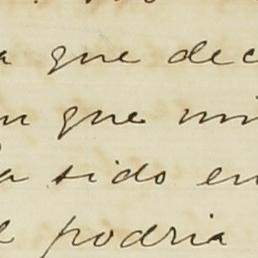 que dec
que
sido en
podria